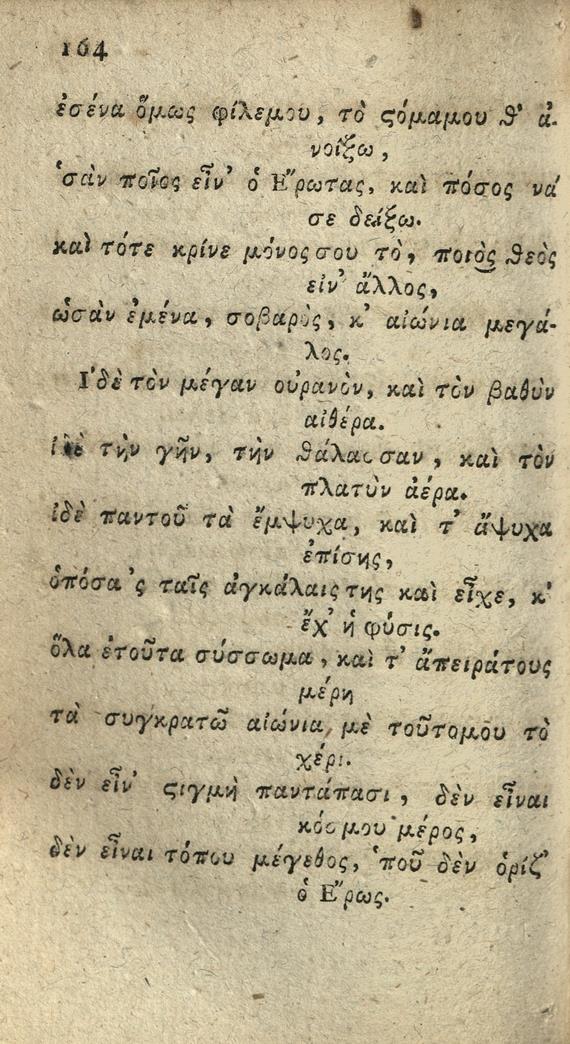 164
ἐσένα ὅμως φίλεμου, τὸ ϛόμαμου θ' ἀ-
νοίξω,
ʽσὰν ποῖος εἶν' ὁ Ἔρωτας, καὶ πόσος νά
σε δείξω.
καὶ τότε κρίνε μόνοςσου τὸ, ποιὸς θεὸς
εἰν' ἄλλος,
ὡσὰν ἐμένα, σοβαρὸς, κ' αἰώνια μεγά-
λος.
Ἰδὲ τὸν μέγαν οὐρανὸν, καὶ τὸν βαθὺν
αἰθέρα.
ἰδὲ τὴν γῆν, τὴν θάλασσαν, καὶ τὸν
πλατὺν ἀέρα.
ἰδὲ παντοῦ τὰ ἔμψυχα, καὶ τ' ἄψυχα
ἐπίσης,
ὁπόσα 'ς ταῖς ἀγκάλαις της καὶ εἶχε, κ'
ἔχ' ἡ φύσις.
ὅλα ἐτοῦτα σύσσωμα, καὶ τ' ἄπειράτους
μέρη
τὰ συγκρατῶ αἰώνια, μὲ τοῦτομου τὸ
χέρι.
δὲν εἶν' ϛιγμὴ παντάπασι, δὲν εἶναι
κόσμου μέρος,
δὲν εἶναι τόπου μέγεθος, ʽποῦ δὲν ὁρίζ'
ὁ Ἔρως.